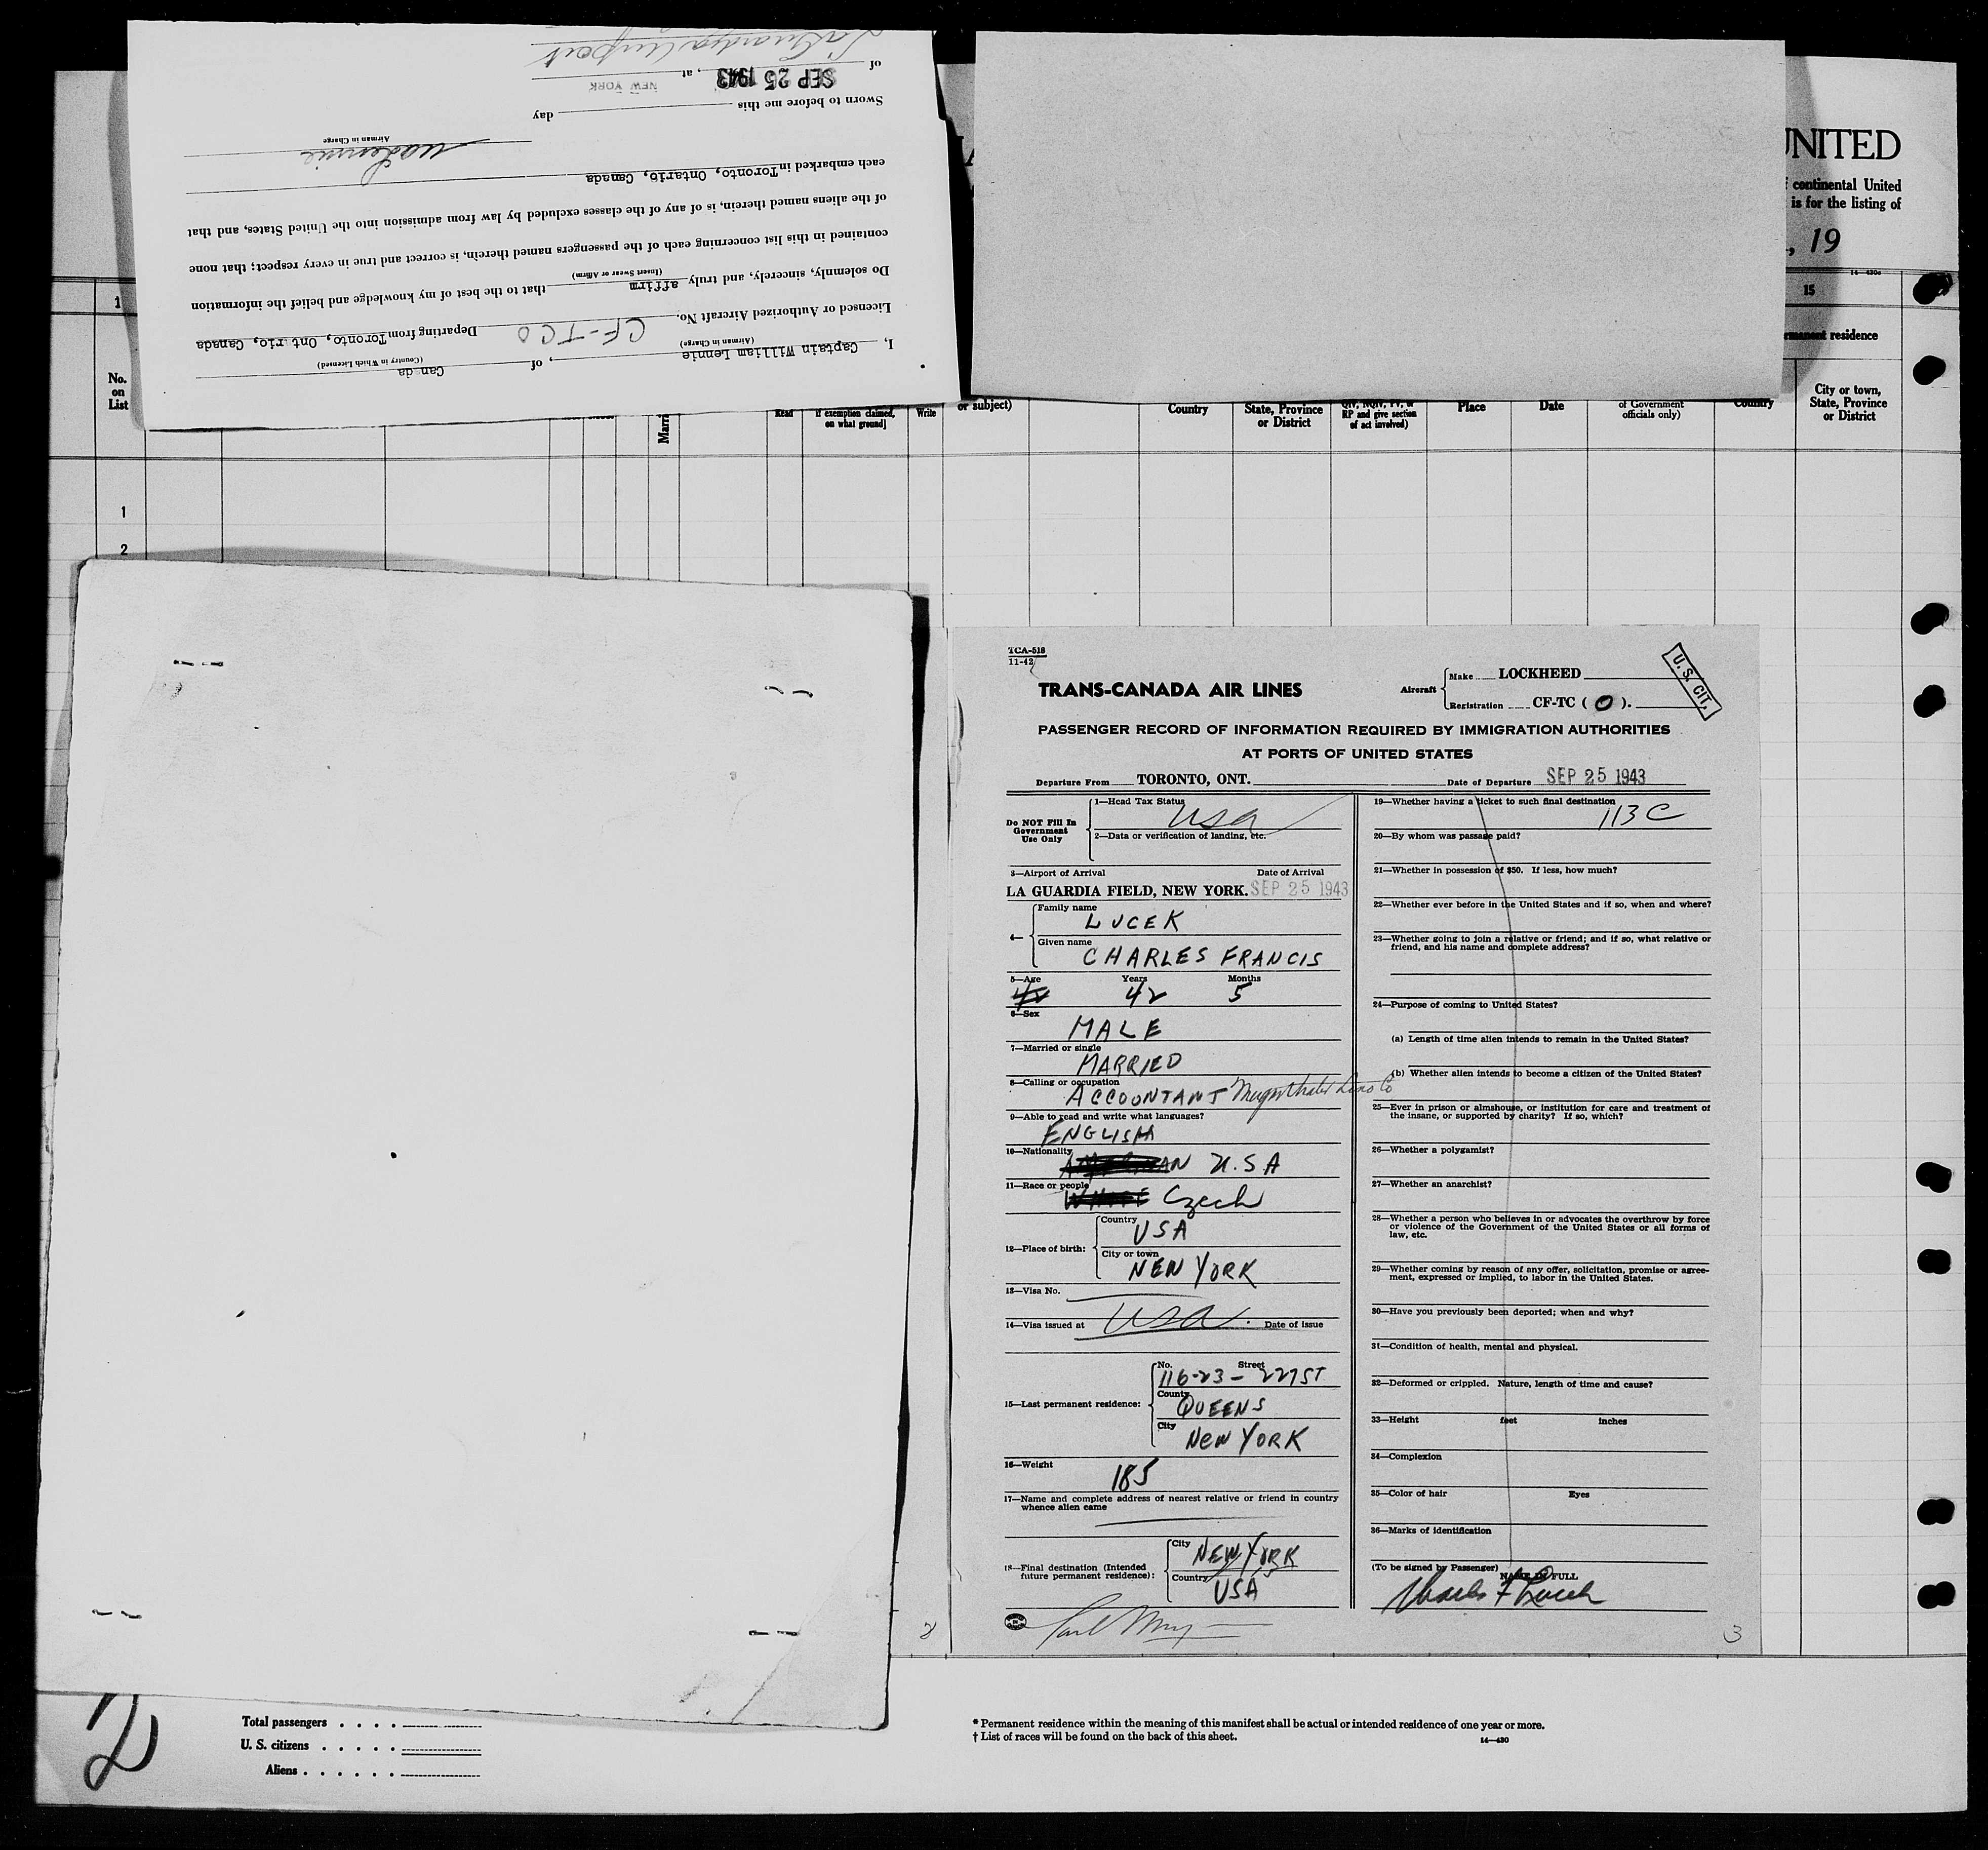 La Guardia Airport
of SEP 25 1943, at NEW YORK
Sworn to before me this day
Airman in Charge
each embarked in Toronto, Ontario, Canada
of the aliens named therein, is of any of the classes excluded by law from admission into the United States, and that
contained in this list concerning each of the passengers named therein, is correct and true in every respect; that none
(Insert Swear or Affirm)
Do solemnly, sincerely, and truly affirm that to the best of my knowledge and belief the information
Licensed or Authorized Aircraft No. CF-TCO Departing from Toronto, Ont rio, Canada
(Airman in Charge) (Country in Which Licensed)
I, Captain William Lennie, of Can da
UNITED
f continental United
is for the listing of
, 19
14—430a
1
15
rmanent residence
No.
on
List
Read
if exemption claimed,
on what ground]
Write
or subject)
Country
State, Province
or District
QIV, NQIV, PV, or
RP and give section
of act involved)
Place
Date
of Government
officials only)
Country
City or town,
State, Province
or District
1
2
TCA-518
11-42
TRANS-CANADA AIR LINES
Aircraft
Make LOCKHEED
Registration CF-TC ( O ).
U. S. CIT.
PASSENGER RECORD OF INFORMATION REQUIRED BY IMMIGRATION AUTHORITIES
AT PORTS OF UNITED STATES
Departure From TORONTO, ONT. Date of Departure SEP 25 1943
Do NOT Fill In
Government
Use Only
1—Head Tax Status USA
2—Data or verification of landing, etc.
3—Airport of Arrival Date of Arrival
LA GUARDIA FIELD, NEW YORK. SEP 25 1943
4—
Family name
LUCEK
Given name
CHARLES FRANCIS
5—Age Years Months
42 42 5
6—Sex
MALE
7—Married or single
MARRIED
8—Calling or occupation
ACCOUNTANT
9—Able to read and write what languages?
ENGLISH
10—Nationality
U.S A
11—Race or people
WHITE Czech
12—Place of birth:
Country
USA
City or town
NEW YORK
13—Visa No.
14—Visa issued at USA. Date of issue
15—Last permanent residence:
No. Street
116-23 — 227 ST
County
QUEENS
City
NEW YORK
16—Weight
185
17—Name and complete address of nearest relative or friend in country
whence alien came
18—Final destination (Intended
future permanent residence):
City
NEW YORK
Country
USA
19—Whether having a ticket to such final destination
113 C
20—By whom was passage paid?
21—Whether in possession of $50. If less, how much?
22—Whether ever before in the United States and if so, when and where?
23—Whether going to join a relative or friend; and if so, what relative or
friend, and his name and complete address?
24—Purpose of coming to United States?
(a) Length of time alien intends to remain in the United States?
(b) Whether alien intends to become a citizen of the United States?
25—Ever in prison or almshouse, or institution for care and treatment of
the insane, or supported by charity? If so, which?
26—Whether a polygamist?
27—Whether an anarchist?
28—Whether a person who believes in or advocates the overthrow by force
or violence of the Government of the United States or all forms of
law, etc.
29—Whether coming by reason of any offer, solicitation, promise or agree-
ment, expressed or implied, to labor in the United States.
30—Have you previously been deported; when and why?
31—Condition of health, mental and physical.
32—Deformed or crippled. Nature, length of time and cause?
33—Height feet inches
34—Complexion
35—Color of hair Eyes
36—Marks of identification
(To be signed by Passenger) NAME IN FULL
Charles F Lucek
2
3
2
Total passengers
U. S. citizens
Aliens
* Permanent residence within the meaning of this manifest shall be actual or intended residence of one year or more.
† List of races will be found on the back of this sheet.
14—430